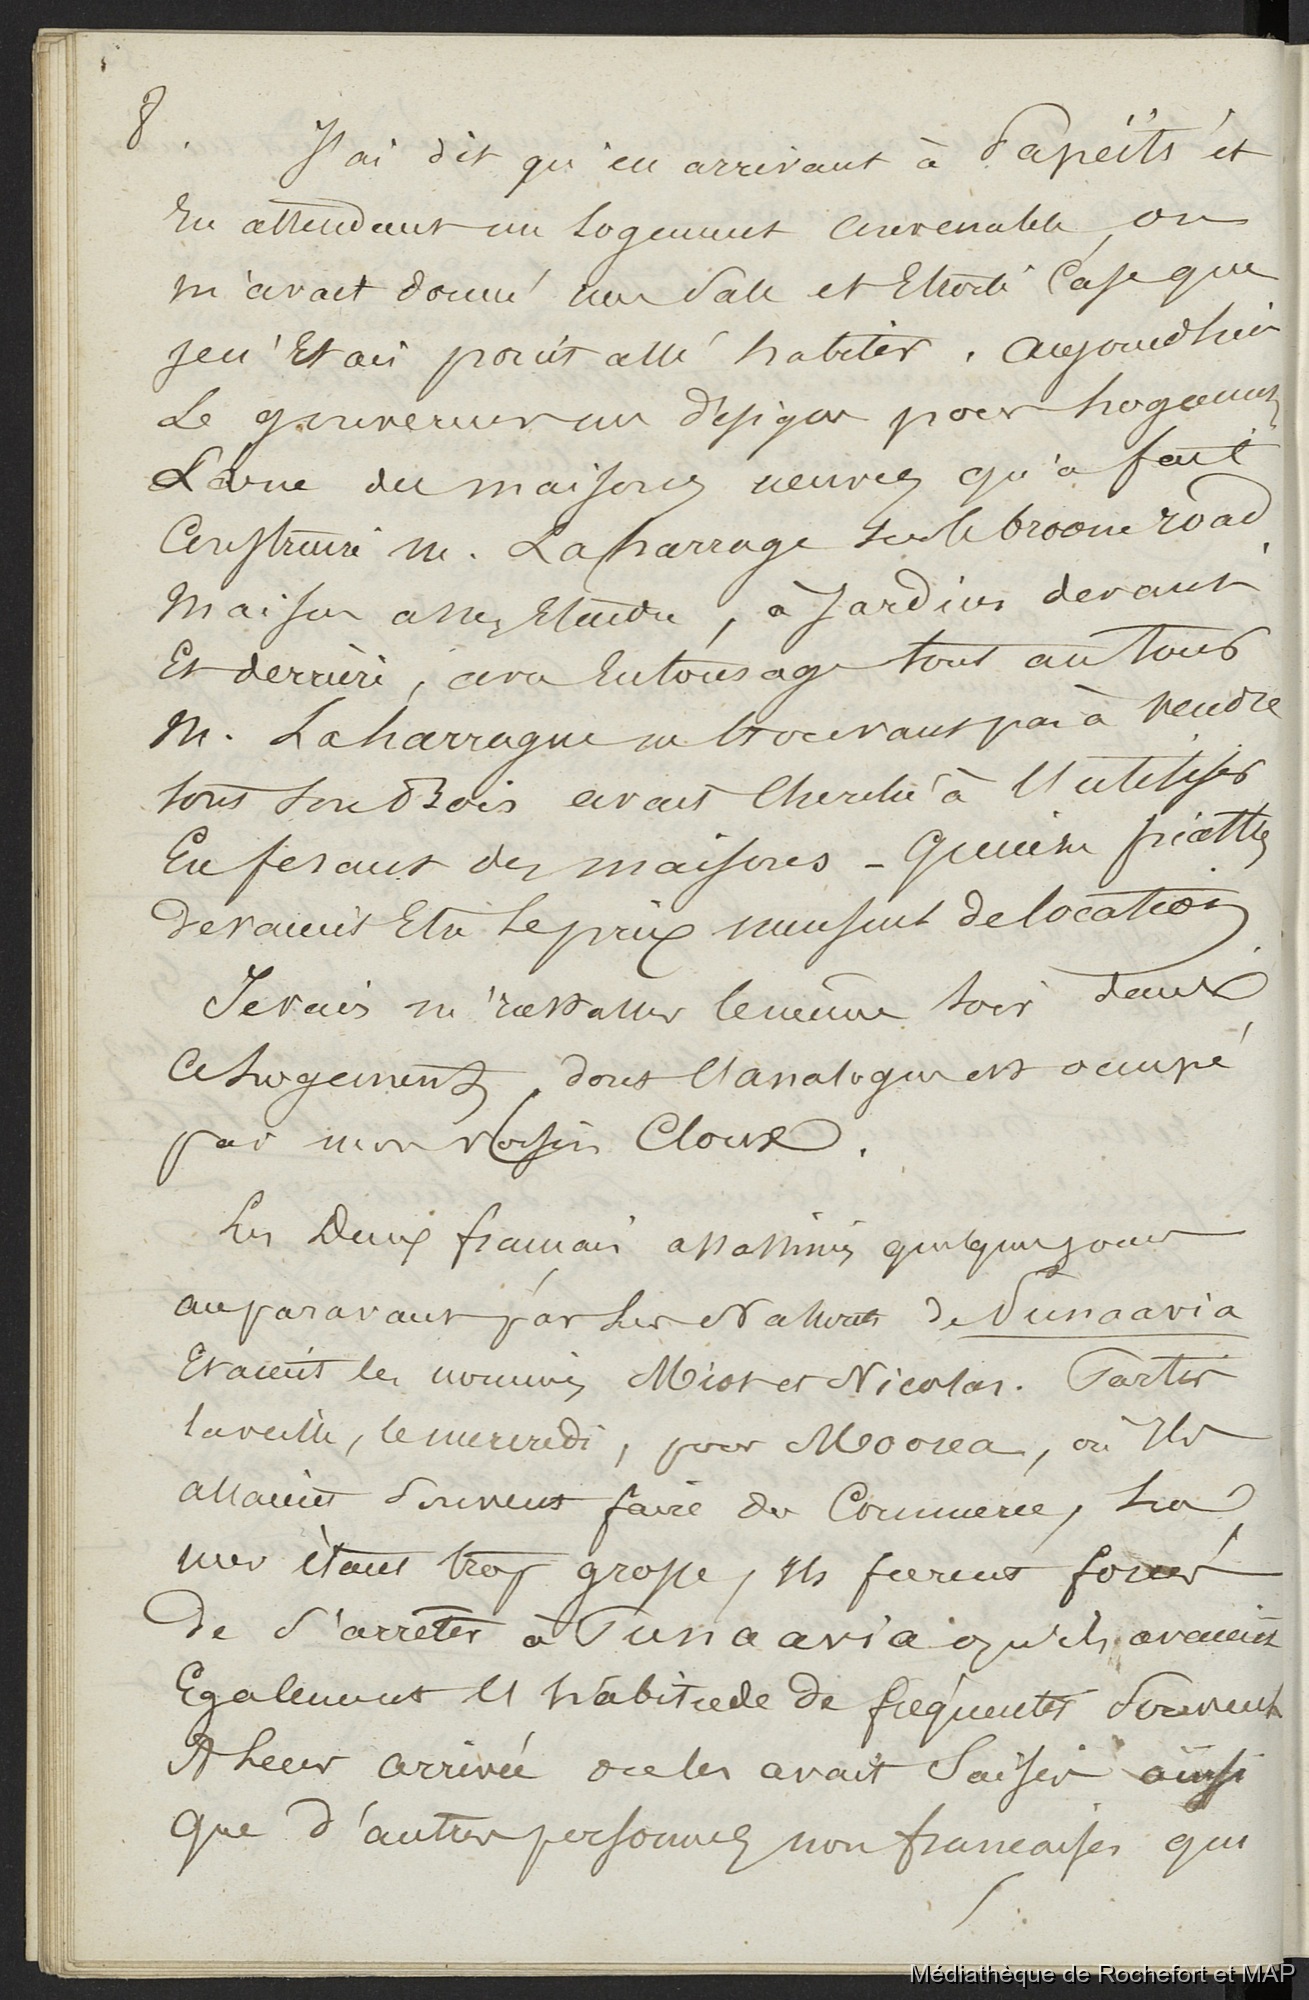 8.
J'ai dit qu'en arrivant à Papéïti et
En attendant un logement convenable, on
m'avait donné une Sale et Etroite Case que
je n'Etais point allé habiter. Aujourdhui
Le gouverneur me désigne pour Logement
L'une des maisons neuves qu'a fait
Construire M. Laharrague sur le broome road,
Maison assez Etendue, à Jardins devant
Et derrière, avec Entourage tout autour
M. Laharrague ne trouvant pas à vendre
tout son Bois avait Cherché à l'utiliser
En fesant des maisons - Quinze piastres
devaient Etre le prix mensuel de location
Je vais m'installer le même soir dans
Ce Logement, dont l'analogue est occupé
par mon voisin Cloux.
Les Deux français assassinés quelques jours
auparavant par les Naturels de Punaavia
Etaient les nommés Miot et Nicolas. Partis
la veille, le mercredi, pour Moorea, où Ils
allaient Souvent faire du Commerce, La
mer étant trop grosse, Ils furent forcés
de S'arrêter à Punaavia qu'ils avaient
Egalement l'habitude de fréquenter Souvent
A Leur arrivée on les avait Saisis ainsi
que d'autres personnes non françaises qui
Médiathèque de Rochefort et MAP